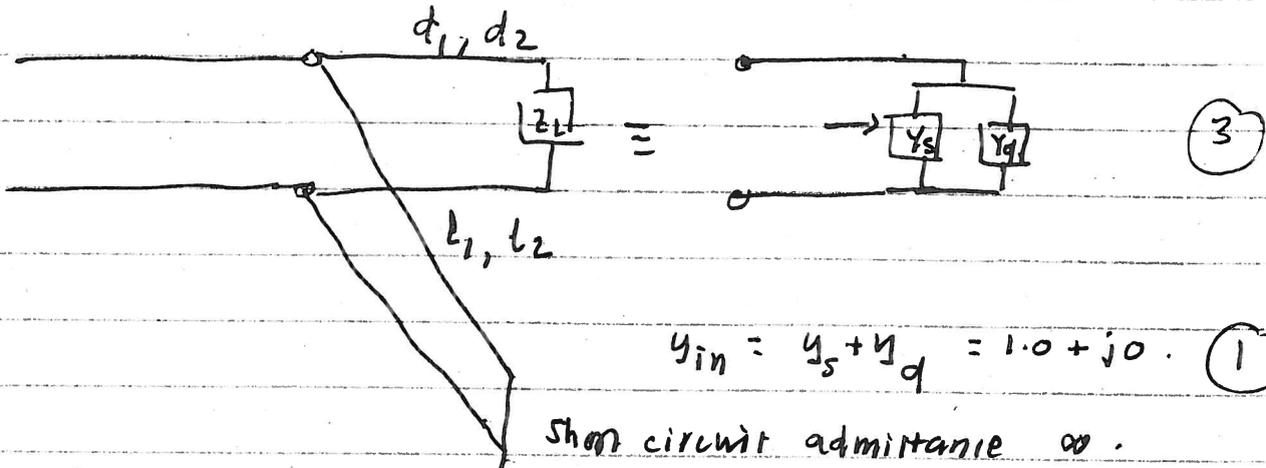 d₁, d₂
Z_L ≡ Y_s Y_d 3
l₁, l₂
y_in = y_s + y_d = 1.0 + j0. 1
Short circuit admittance ∞.